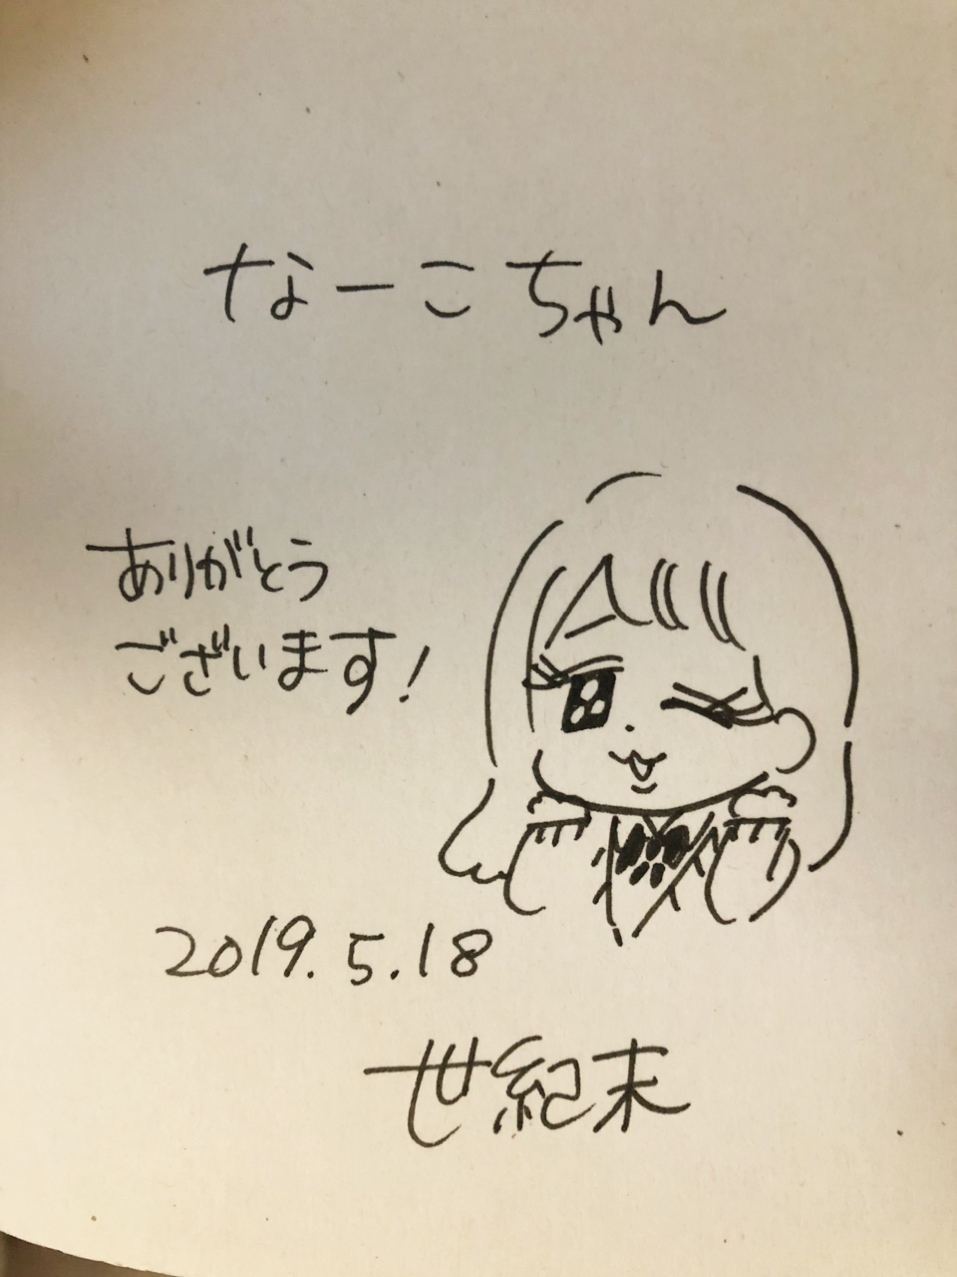 なーこちゃん
ありがとう
ございます!
2019.5.18
世紀末